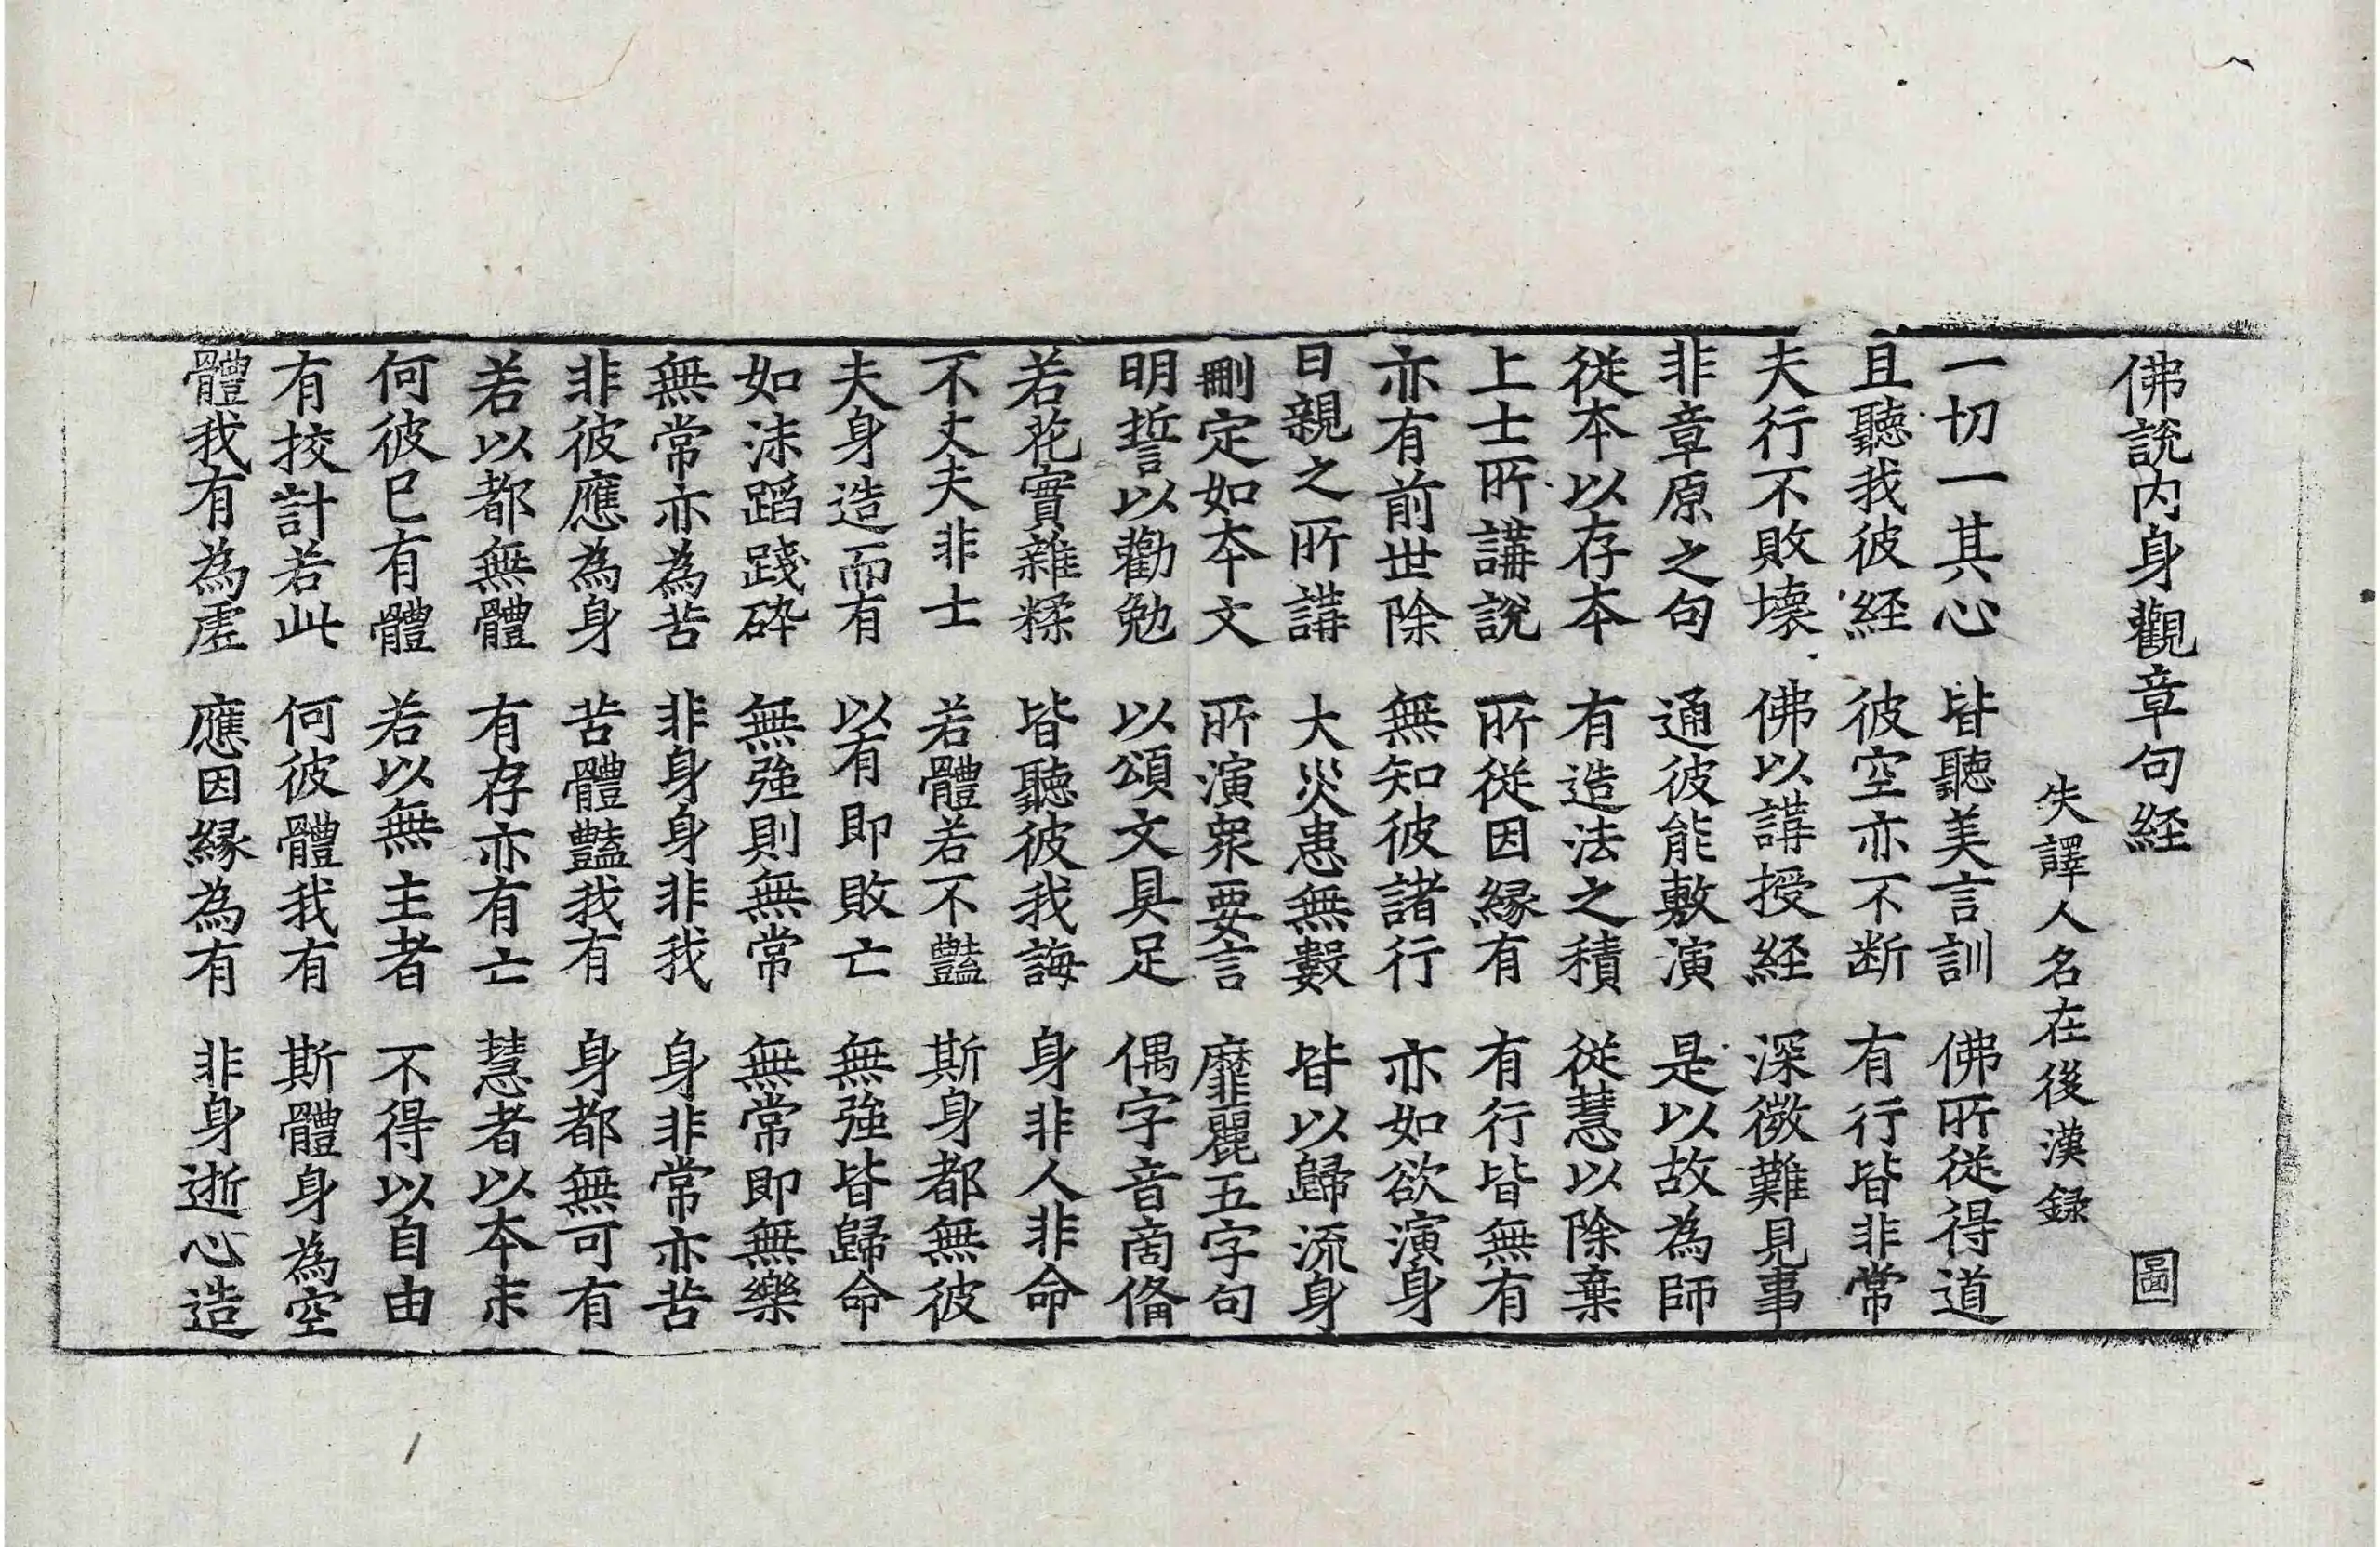 佛說内身觀章句経 圖
失譯人名在後漢録
一切一其心 皆聽美言訓 佛所従得道
且聽我彼経 彼空亦不断 有行皆非常
夫行不敗壊 佛以講授経 深微難見事
非章原之句 通彼能敷演 是以故為師
従本以存本 有造法之積 従慧以除棄
上士所講說 所従因縁有 有行皆無有
亦有前世除 無知彼諸行 亦如欲演身
日親之所講 大災患無數 皆以歸流身
刪定如本文 所演衆要言 靡麗五字句
明誓以勸勉 以頌文具足 偶字音啇俻
若花實雜糅 皆聽彼我誨 身非人非命
不丈夫非士 若體若不豔 斯身都無彼
夫身造而有 以有即敗亡 無強皆歸命
如沫蹈踐碎 無強則無常 無常即無樂
無常亦為苦 非身身非我 身非常亦苦
非彼應為身 苦體豔我有 身都無可有
若以都無體 有存亦有亡 慧者以本末
何彼已有體 若以無主者 不得以自由
有挍計若此 何彼體我有 斯體身為空
體我有為虛 應因縁為有 非身逝心造